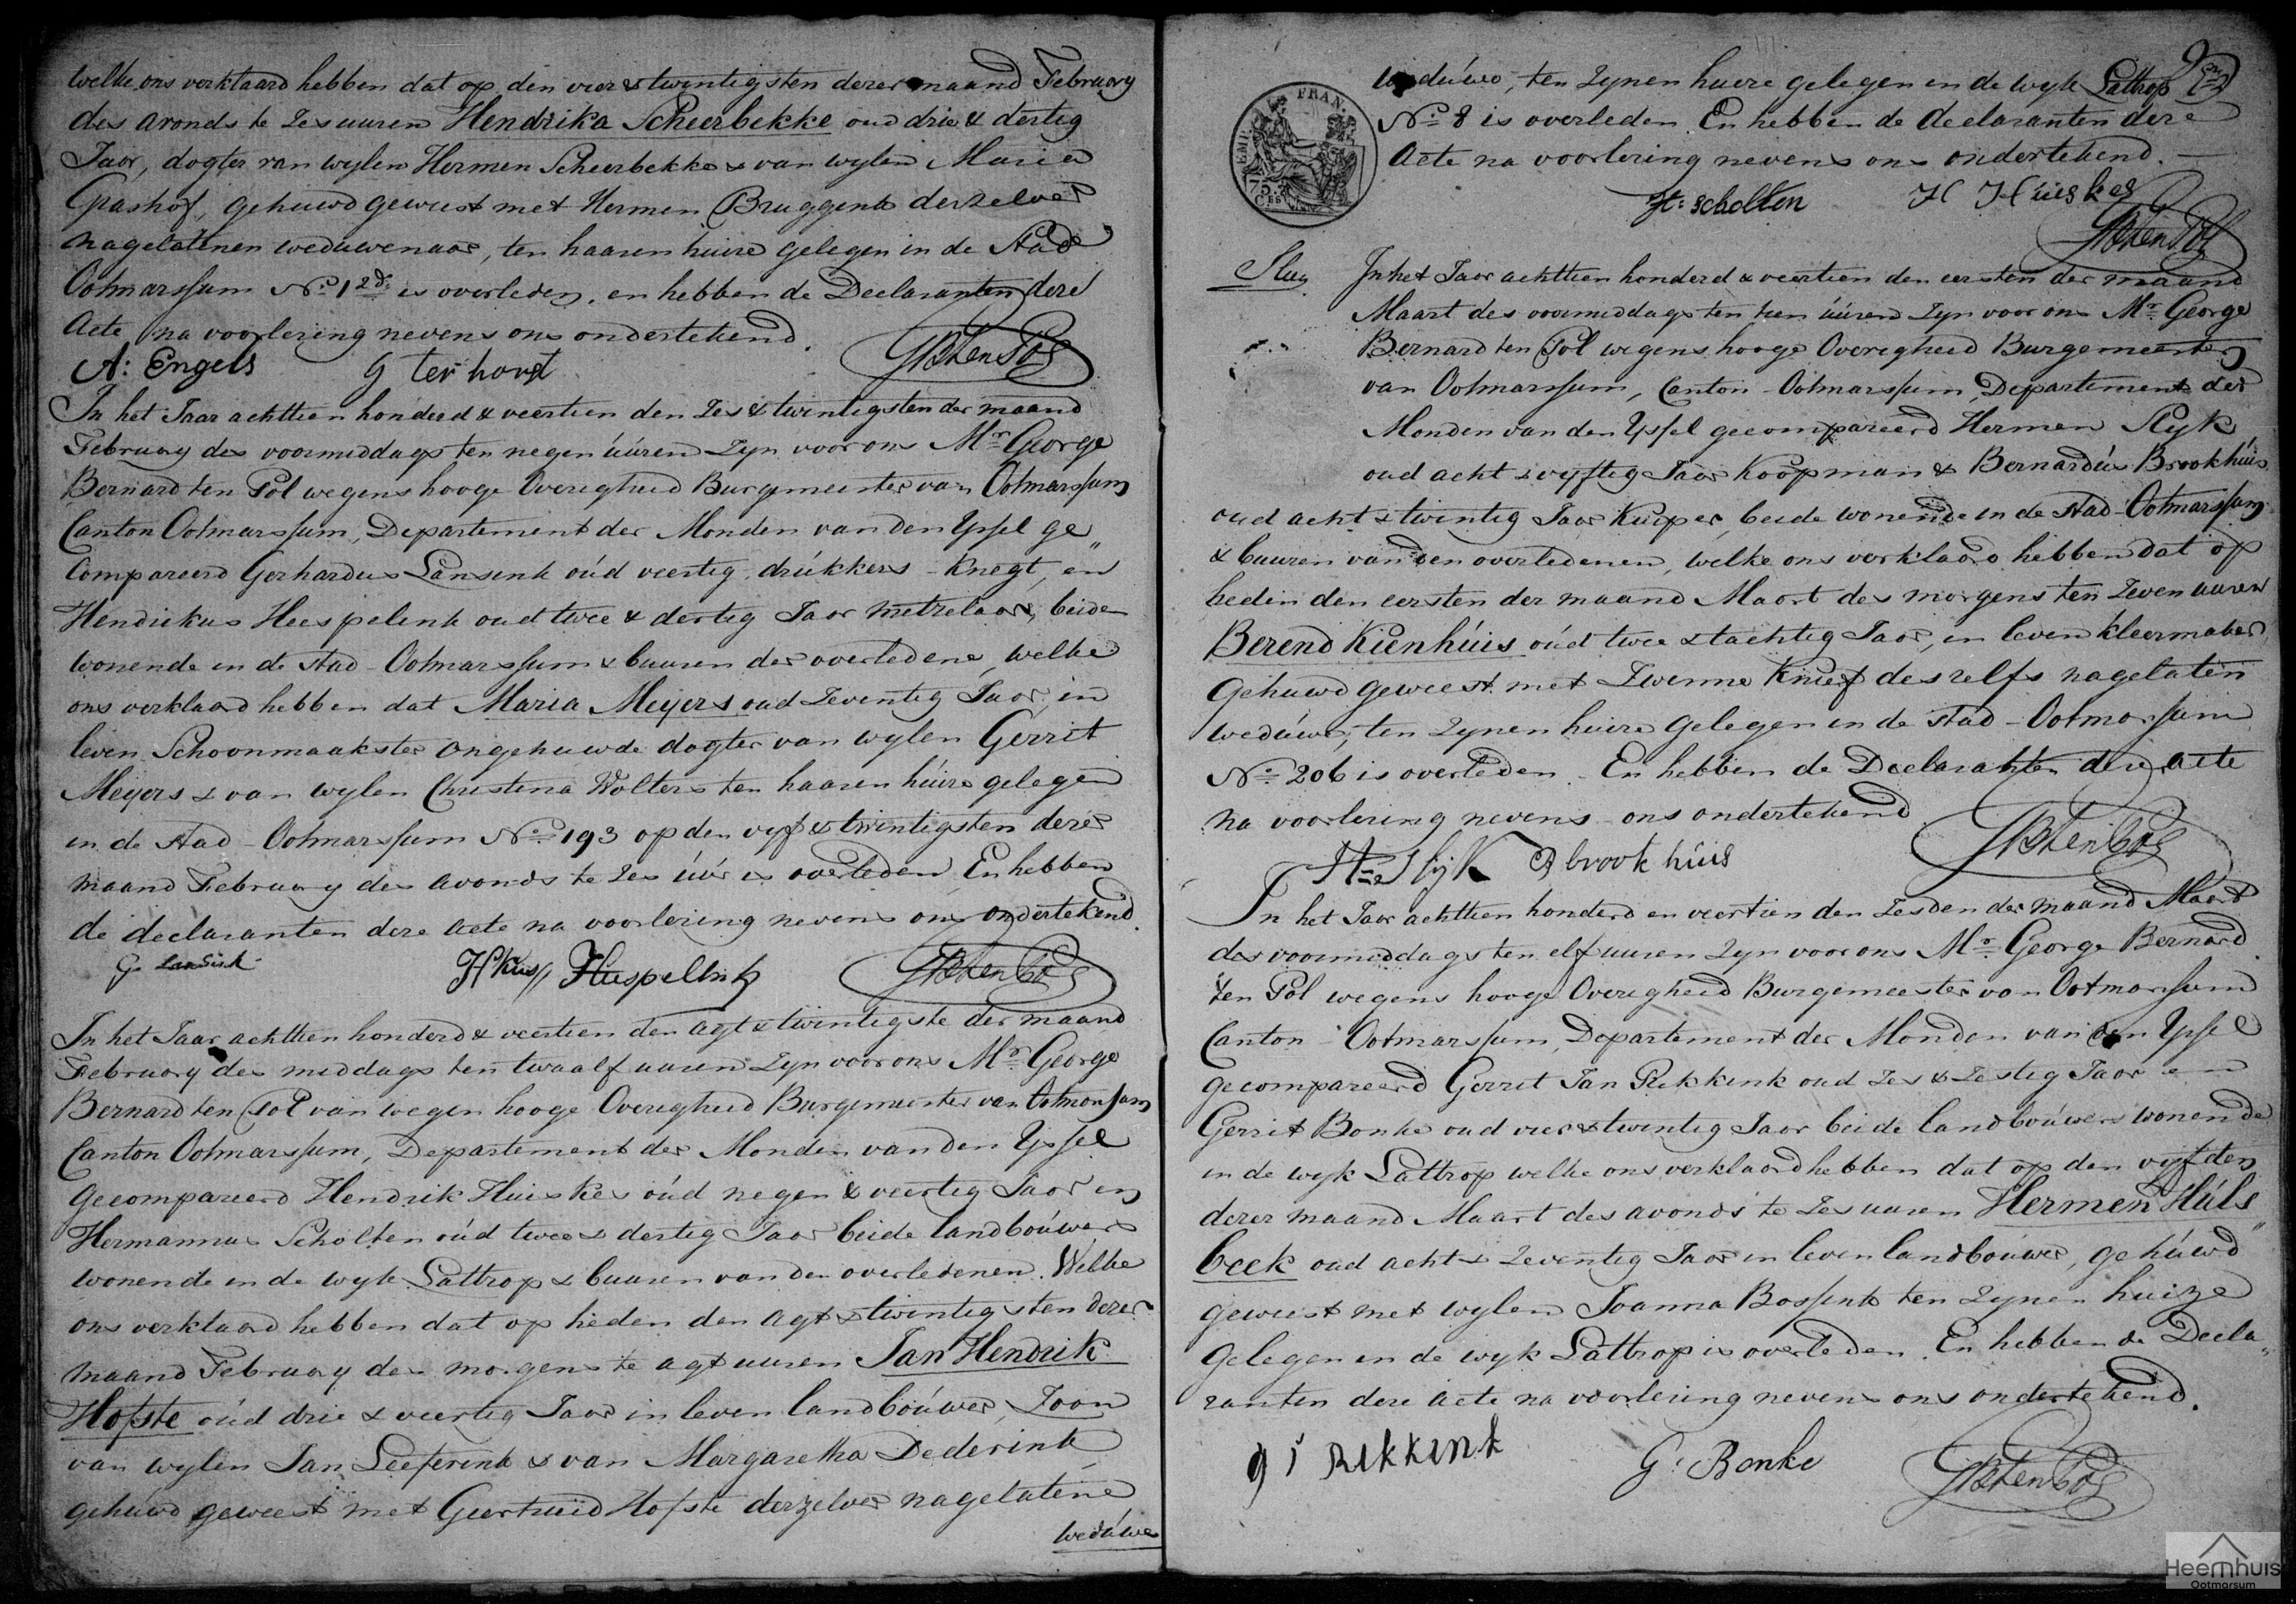 welke ons verklaard hebben dat op den vier & twintigsten dezer maand February
des avonds te zes uuren Hendrika Scheerbekke oud drie & dertig
Jaar, dogter van wylen Hermen Scheerbekke & van wylen Maria
Gashof, gehuwd geweest met Hermen Bruggink derzelver
nagelatenen weduwenaar, ten haaren huize gelegen in de Stad
Ootmarssum No. 12 d. is overleden, en hebben de Declaranten deze
Acte na voorlezing nevens ons ondertekend.
A: Engels G ter horst GBtenPol
In het Jaar achttien honderd & veertien den zes & twintigsten der maand
February des voormiddags ten negen úúren zyn voor ons Mr. George
Bernard ten Pol wegens hooge Overigheid Burgemeester van Ootmarssum
Canton Ootmarssum, Departement der Monden van den Yssel ge„
compareerd Gerhardus Lansink oúd veertig, drúkkers-knegt, en
Hendrikus Heespelink oud twee & dertig Jaar metzelaar, beide
wonende in de Stad Ootmarssum & buuren der overledene, welke
ons verklaard hebben dat Maria Meyers oud zeventig Jaar, in
leven Schoonmaakster ongehuwde dogter van wylen Gerrit
Meyers & van wylen Christina Wolters ten haaren húize gelegen
in de Stad-Ootmarssum No. 193 op den vyf & twintigsten dezer
maand February des avonds te zes úúr is overleden En hebben
de declaranten deze acte na voorlezing nevens ons ondertekend.
G. Lansink Hkus Huspelink GBtenPol
In het Jaar achttien honderd & veertien den agt & twintigste der maand
February des middags ten twaalf uuren zyn voor ons Mr. George
Bernard ten Pol van wegen hooge Overigheid Burgemeester van Ootmarssum
Canton Ootmarssum, Departement der Monden van den Yssel
gecompareerd Hendrik Huiskes oúd negen & veertig Jaar en
Hermannus Scholten oúd twee & dertig Jaar beide landboúwers
wonende in de wyk Lattrop & buuren van den overledenen. Welke
ons verklaard hebben dat op heden den agt & twintigsten dezer
maand February des morgens te agt uuren Jan Hendrik
Hofste oúd drie & veertig Jaar in leven landboúwer, Zoon
van wylen Jan Leeferink & van Margaretha Dederink
gehúwd geweest met Geertruid Hofste derzelver nagelatene
wedúwe
wedúwe, ten zynen huize gelegen in de wyk Lattrop
No. 8 is overleden. En hebben de declaranten deze
Acte na voorlezing nevens ons ondertekend.
H: scholten H Húiskes
GBtenPol
FRAN.
75.
CES
In het Jaar achttien honderd & veertien den eersten der maand
Maart des voormiddags ten tien úúren zyn voor ons Mr. George
Bernard ten Pol wegens hooge Overigheid Burgemeester
van Ootmarssum, Canton-Ootmarssum, Departement der
Monden van den Yssel gecompareerd Hermen Slyk
oud acht & vyftig Jaar Koopman & Bernardús Brookhúis
oud acht & twintig Jaar Kuiper, beide wonende in de Stad-Ootmarssum
& buuren van den overledenen, welke ons verklaard hebben dat op
heden den eersten der maand Maart des morgens ten zeven uuren
Berend Kienhúis oúd twee & tachtig Jaar, in leven kleermaker
gehuwd geweest met Zwenne Knief deszelfs nagelaten
wedúwe, ten zynen huize gelegen in de Stad-Ootmarssum
No. 206 is overleden. En hebben de Declaranten deze acte
na voorlezing nevens ons ondertekend
Hn Slijk B brookhúis GBtenPol
In het Jaar achttien honderd en veertien den zesden der maand Maart
des voormiddags ten elf uuren zyn voor ons Mr. George Bernard
ten Pol wegens hooge Overigheid Burgemeester van Ootmarssum
Canton-Ootmarssum, Departement der Monden van den Yssel
gecompareerd Gerrit Jan Rekkink oud zes & zestig Jaar en
Gerrit Bonke oud vier & twintig Jaar beide landboúwers wonende
in de wyk Lattrop welke ons verklaard hebben dat op den vyfden
dezer maand Maart des avonds te zes uuren Hermen Húls„
beek oud acht & zeventig Jaar in leven landboúwer, gehúwd
geweest met wylen Joanna Bossink ten zynen huize
gelegen in de wyk Lattrop is overleden. En hebben de Decla„
ranten deze acte na voorlezing nevens ons ondertekend.
g j REKKINK G. Bonke GBtenPol
Heemhuis
Ootmarsum